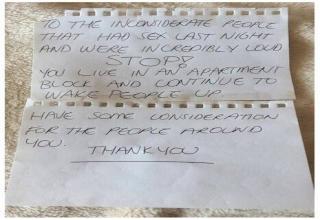 TO THE INCONSIDERATE PEOPLE
THAT HAD SEX LAST NIGHT
AND WERE INCREDIBLY LOUD
STOP!
YOU LIVE IN AN APARTMENT
BLOCK AND CONTINUE TO
WAKE PEOPLE UP
HAVE SOME CONSIDERATION
FOR THE PEOPLE AROUND
YOU. THANK YOU